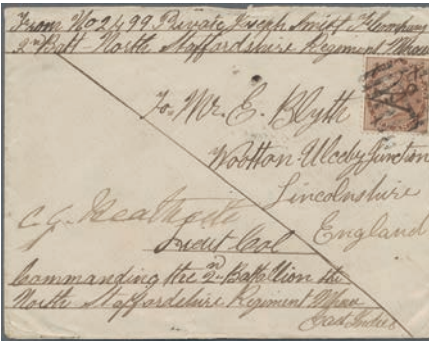 From No 2499 Private Joseph Swift H Company
2nd Batt - North Staffordshire Regiment Mhow
To. Mr. E. Blyth
Wootton Ulceby Junction
Lincolnshire
England
C. G.
Lieut Col
Commanding the 2nd Battallion the
North Staffordshire Regiment Mhow
East Indies